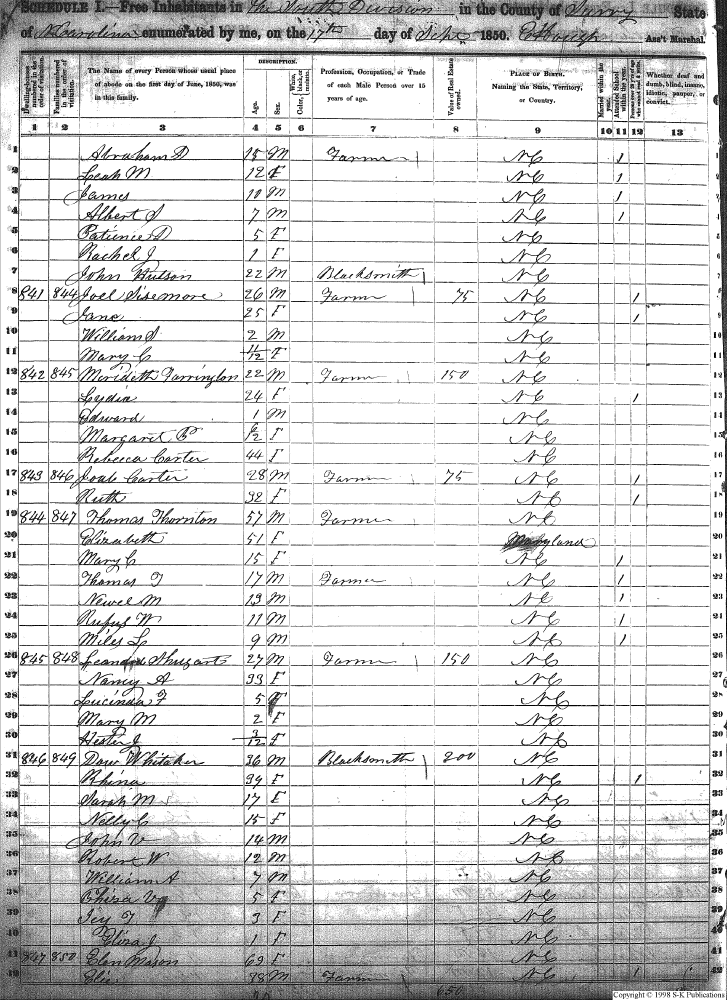 SCHEDULE I.—Free Inhabitants in The South Division in the County of Surry State
of N Carolina enumerated by me, on the 17th day of Sept 1850. Ass't Marshal.
Dwelling-houses numbered in the order of visitation.
Families numbered in the order of visitation.
The Name of every Person whose usual place of abode on the first day of June, 1850, was in this family.
DESCRIPTION.
Age.
Sex.
Color, White, black, or mulatto.
Profession, Occupation, or Trade of each Male Person over 15 years of age.
Value of Real Estate owned.
PLACE OF BIRTH. Naming the State, Territory, or Country.
Married within the year.
Attended School within the year.
Persons over 20 y'rs of age who cannot read & write.
Whether deaf and dumb, blind, insane, idiotic, pauper, or convict.
1 2 3 4 5 6 7 8 9 10 11 12 13
1 Abraham D 15 M Farmer NC 1
2 Leah M 12 F NC 1
3 James 10 M NC 1
4 Albert S 7 M NC 1
5 Patience D 5 F NC
6 Rachel J 1 F NC
7 John Hutson 22 M Blacksmith NC
8 841 844 Joel Sisemore 26 M Farmer 75 NC 1
9 Jane 25 F NC 1
10 William S 2 M NC
11 Mary C 11/12 F NC
12 842 845 Merideth Farrington 22 M Farmer 150 NC
13 Lydia 24 F NC 1
14 Edward 1 M NC
15 Margaret P 6/12 F NC
16 Rebecca Carter 44 F NC
17 843 846 Joab Carter 28 M Farmer 75 NC 1
18 Ruth 32 F NC 1
19 844 847 Thomas Thornton 57 M Farmer NC
20 Elizabeth 51 F Maryland
21 Mary C 15 F NC 1
22 Thomas T 17 M Farmer NC 1
23 Newel M 13 M NC 1
24 Rufus W 11 M NC 1
25 Miles L 9 M NC 1
26 845 848 27 M Farmer 150 NC
27 Nancy A 33 F NC
28 Lucinda F 5 F NC
29 Mary M 2 F NC
30 Hester J 3/12 F NC
31 846 849 Whitaker 36 M Blacksmith 200 NC
32 Rhina 34 F NC 1
33 Sarah M 17 F NC
34 Nelly C 15 F NC
35 John V 14 M NC
36 Robert W 12 M NC
37 William A 7 M NC
38 5 F NC
39 Icy T 3 F NC
40 Eliza J 1 F NC
41 847 850 Elen Mason 69 F NC
42 38 M Farmer NC
650
Copyright © 1998 S-K Publications